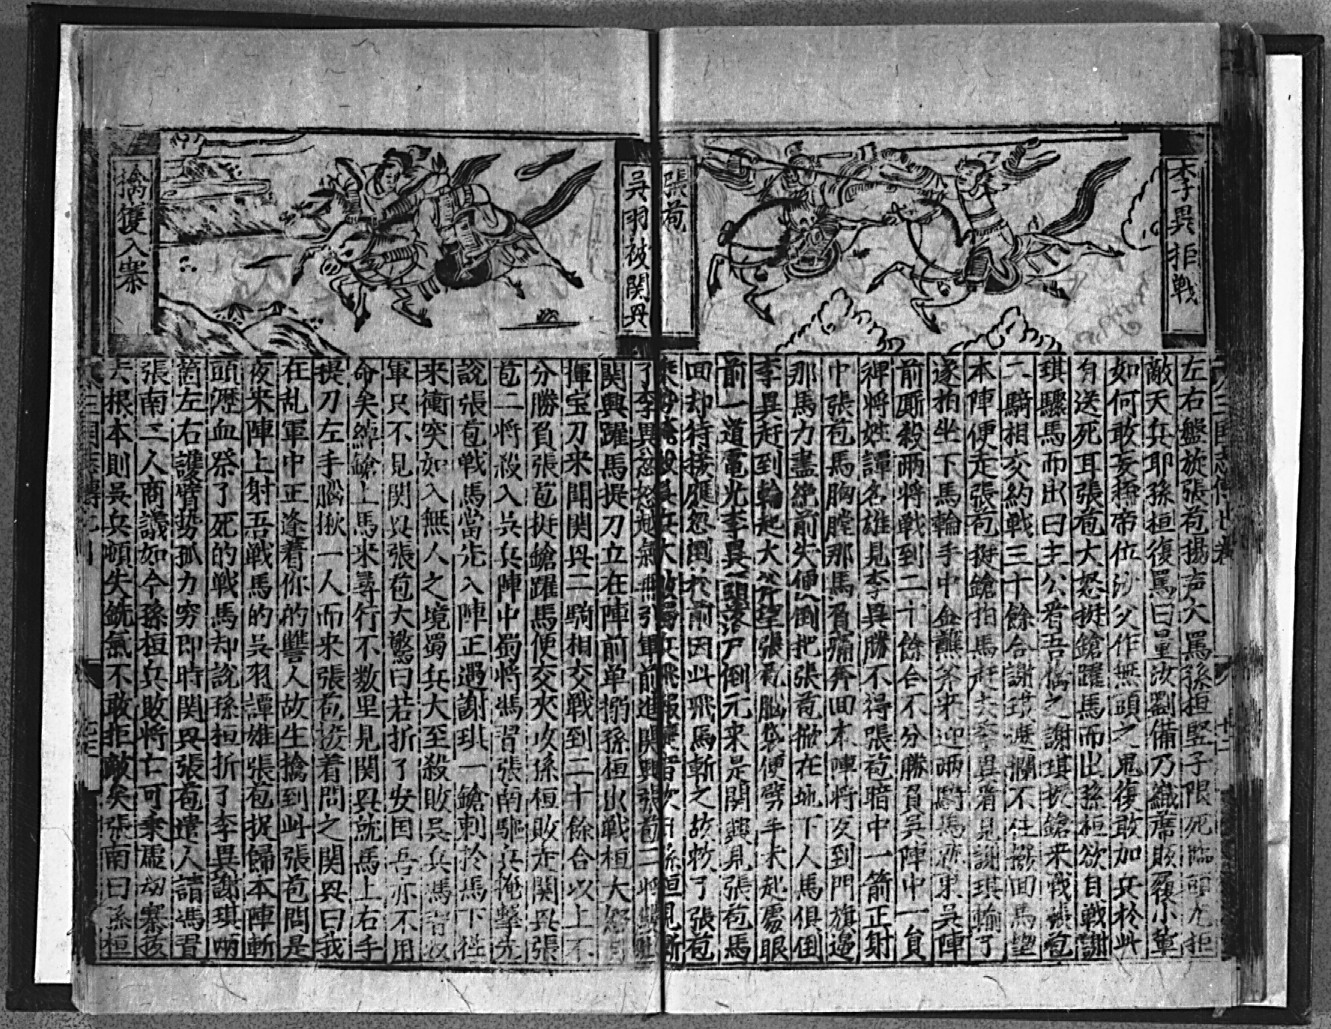 李異拒戰
張苞
左右盤旋張苞揚声大罵孫桓竪子限死臨頭尤拒
敵天兵耶孫桓復罵曰量汝劉備乃織蓆販屨小輩
如何敢妄称帝位汝父作無頭之鬼復敢加兵於此
有送死耳張苞大怒挺鎗躍馬而出孫桓欲自戰謝
琪驟馬而出曰主公看吾擒之謝琪挺鎗来戰張苞
二騎相交約戰三十餘合謝琪遮攔不住撥回馬望
本陣便走張苞挺鎗拍馬赶去李異看見謝琪輸了
遂拍坐下馬輪手中金蘸斧来迎兩騎馬
前厮殺兩将戰到二十餘合不分勝負吳陣中一員
裨将姓譚名雄見李異勝不得張苞暗中一箭正射
中張苞馬胸膛那馬負痛奔回本陣将及到門旗邉
那馬力盡絶前失便倒把張苞掀在地下人馬俱倒
李異赶到輪起大斧望張苞脳袋便劈手未起處眼
前一道電光李異頭落尸倒元来是関興見張苞馬
回却待接應忽倒於前因此飛馬斬之故救了張苞
了李異
吳羽被関興
擒獲入寨
関興躍馬提刀立在陣前单搦孫桓出戰桓大怒
揮宝刀来鬪関興二騎相交戰到二十餘合以上不
分勝負張苞挺鎗躍馬便交夹攻孫桓敗走関興張
苞二将殺入吳兵陣中蜀将馮習張南驅兵掩擊先
說張苞戰馬當先入陣正遇謝琪一鎗刺於馬下往
来衝突如入無人之境蜀兵大至殺敗吳兵馮習收
軍只不見関興張苞大驚曰若折了安国吾亦不用
命矣綽鎗上馬来尋行不数里見関興就馬上右手
提刀左手腦揪一人而来張苞接着問之関興曰我
在乱軍中正逢着你的讐人故生擒到此張苞問是
夜来陣上射吾戰馬的吳羽譚雄張苞捉歸本陣斬
頭瀝血祭了死的戰馬却說孫桓折了李異謝琪兩
箇左右護臂势孤力穷即時関興張苞遣人請馮習
張南二人商議如今孫桓兵敗将亡可乗虛刼寨後
去根本則吳兵頓失銳氣不敢拒敵矣張南曰孫桓